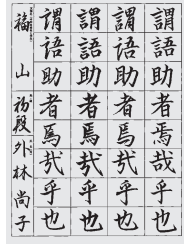 謂語助者焉哉乎也
謂語助者焉哉乎也
謂語助者焉哉乎也
謂語助者焉哉乎也
福山 初段 外林尚子